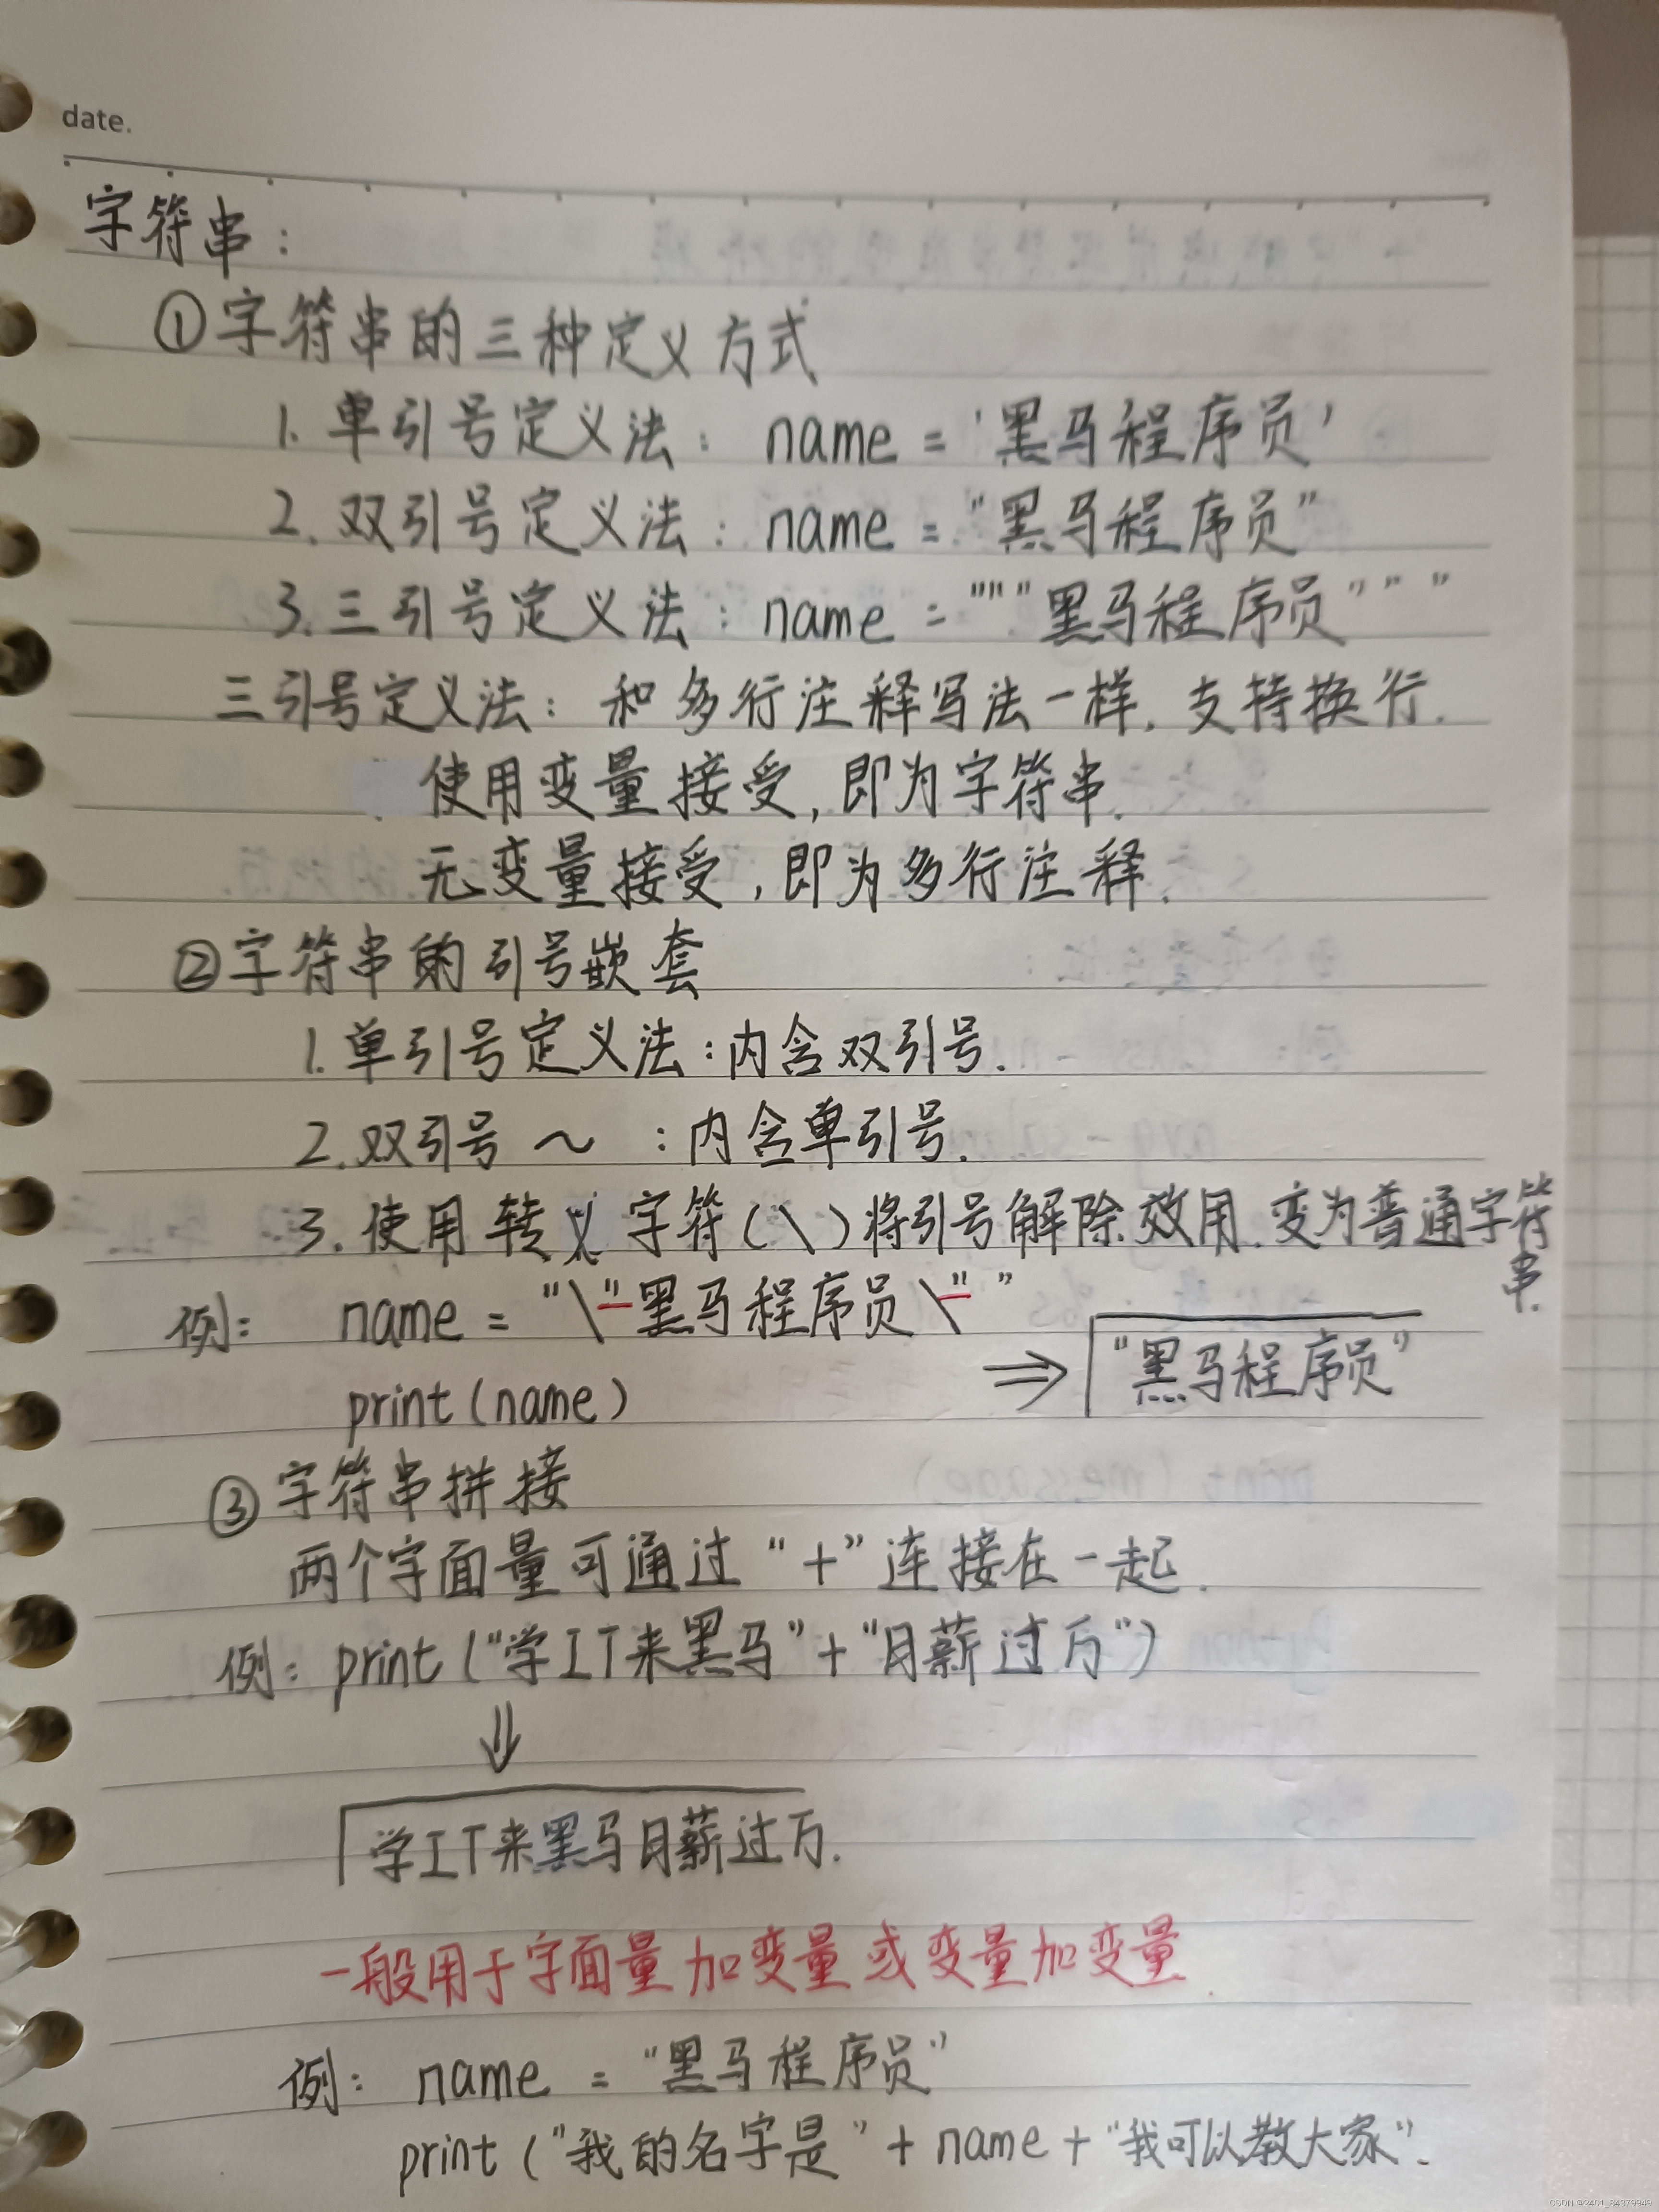 date.
字符串：
①字符串的三种定义方式
1. 单引号定义法： name = '黑马程序员'
2. 双引号定义法： name = "黑马程序员"
3. 三引号定义法： name = """黑马程序员"""
三引号定义法：和多行注释写法一样. 支持换行.
使用变量接受, 即为字符串.
无变量接受, 即为多行注释.
②字符串的引号嵌套
1. 单引号定义法：内含双引号.
2. 双引号 ～ ：内含单引号.
3. 使用转义字符(\)将引号解除效用. 变为普通字符串.
例： name = "\"黑马程序员\" "
print(name) ⇒ "黑马程序员"
③字符串拼接
两个字面量可通过 "+" 连接在一起.
例：print("学IT来黑马"+"月薪过万")
⇓
学IT来黑马月薪过万.
一般用于字面量加变量或变量加变量.
例： name = "黑马程序员"
print ("我的名字是" + name + "我可以教大家".
CSDN @2401_84379949